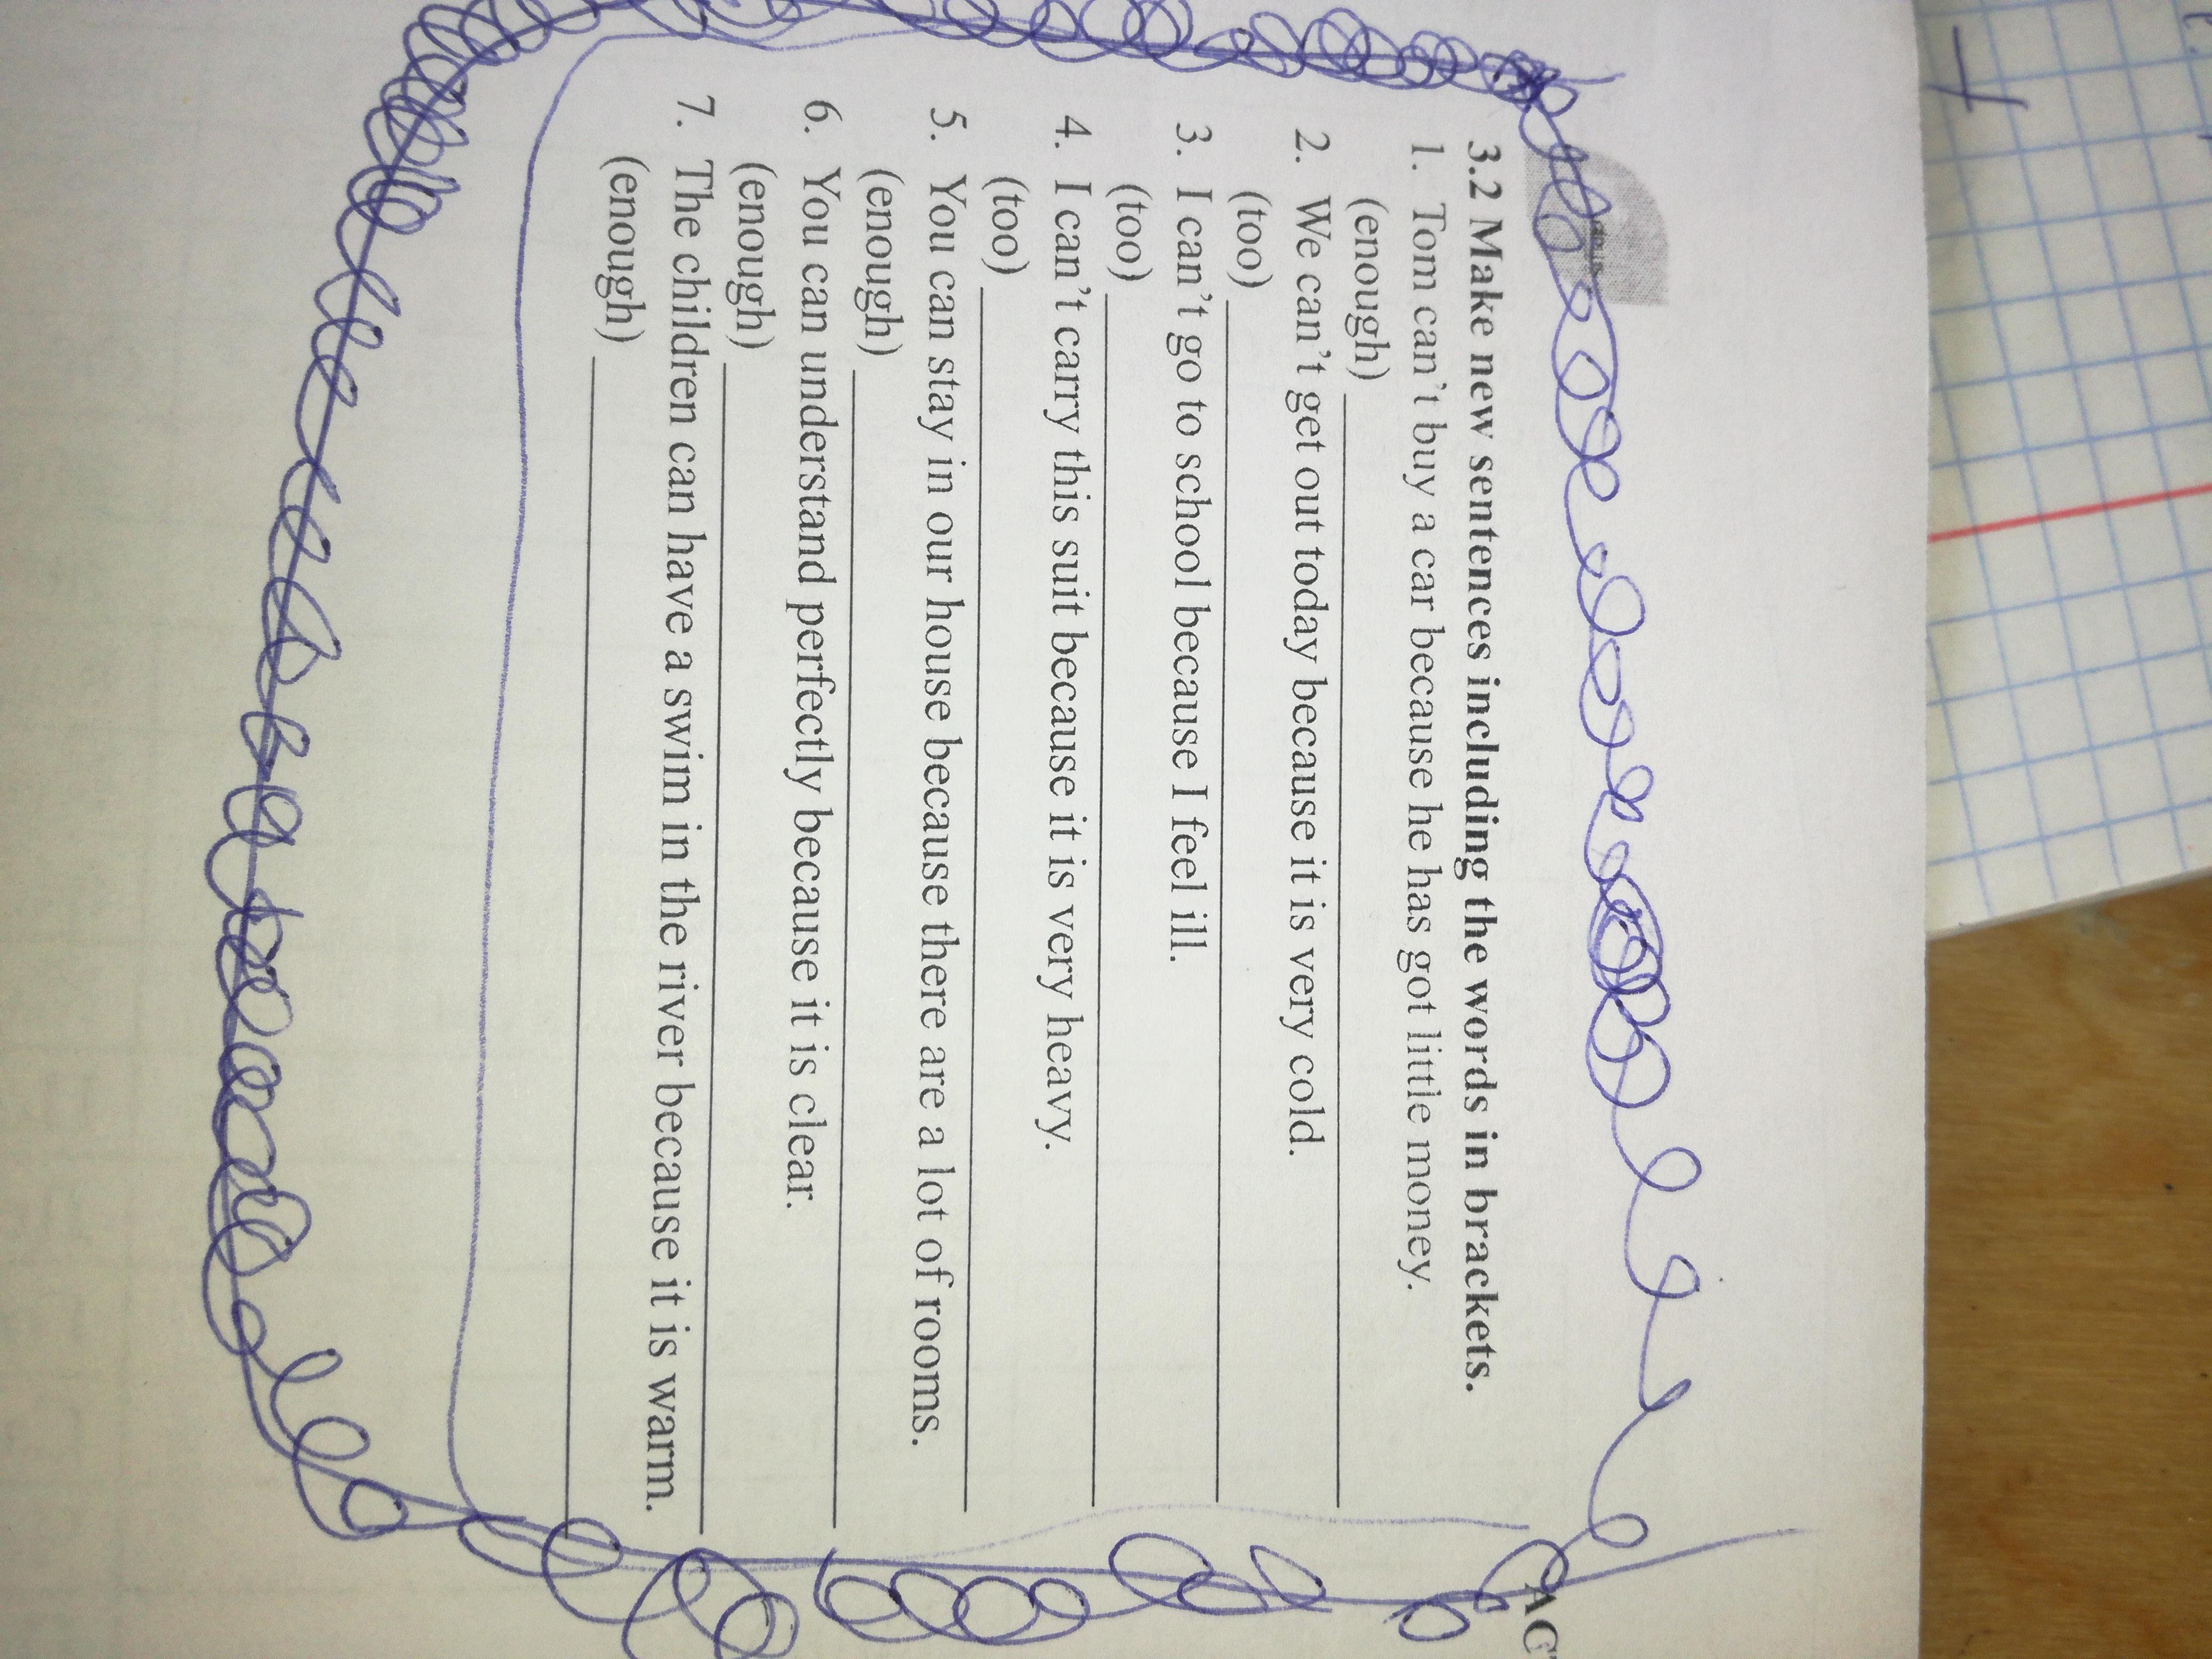 3.2 Make new sentences including the words in brackets.
1. Tom can't buy a car because he has got little money.
(enough)
2. We can't get out today because it is very cold.
(too)
3. I can't go to school because I feel ill.
(too)
4. I can't carry this suit because it is very heavy.
(too)
5. You can stay in our house because there are a lot of rooms.
(enough)
6. You can understand perfectly because it is clear.
(enough)
7. The children can have a swim in the river because it is warm.
(enough)